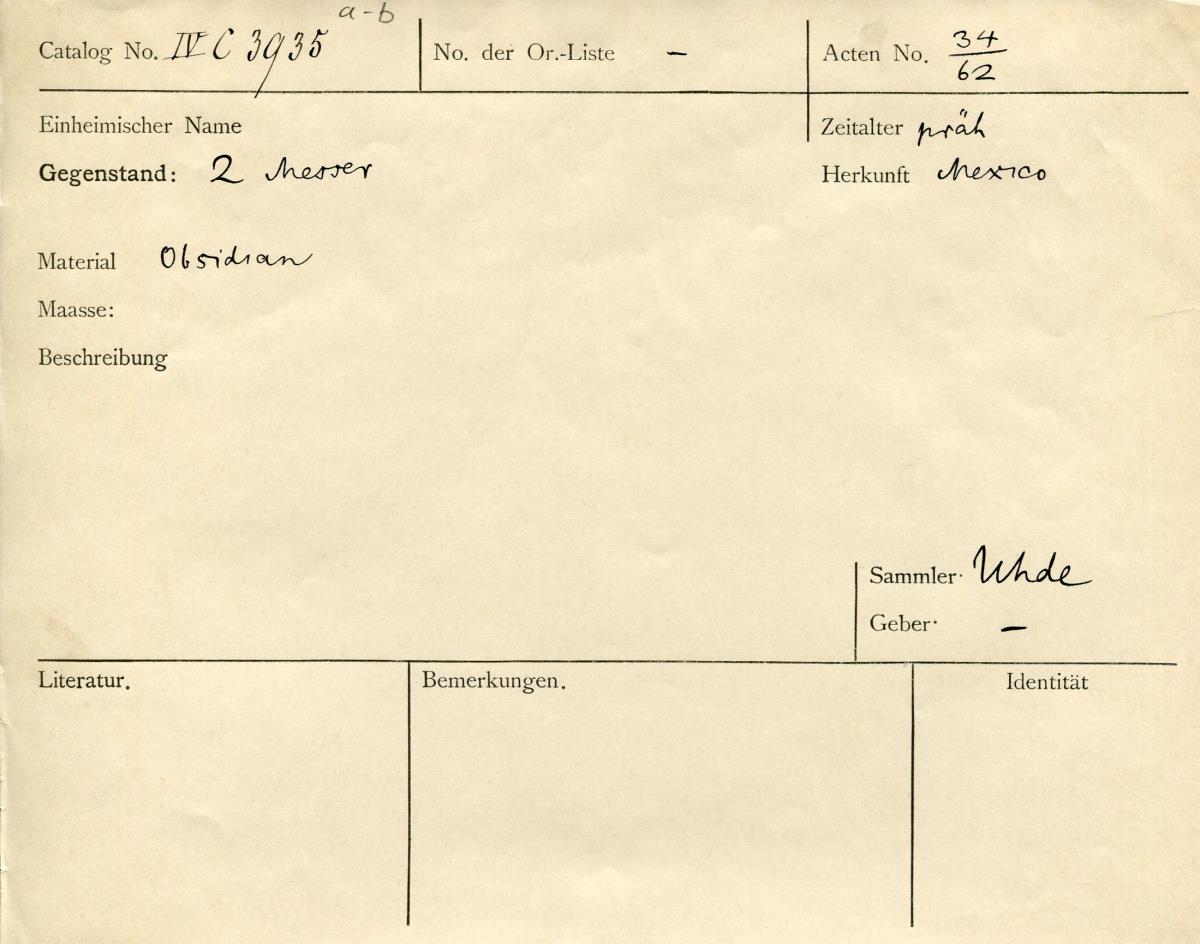 a-b
Catalog No. IV C 3935 No. der Or.-Liste – Acten No. 34/62
Einheimischer Name Zeitalter präh
Gegenstand: 2 Messer Herkunft Mexico
Material Obsidian
Maasse:
Beschreibung
Sammler. Uhde
Geber. –
Literatur. Bemerkungen. Identität